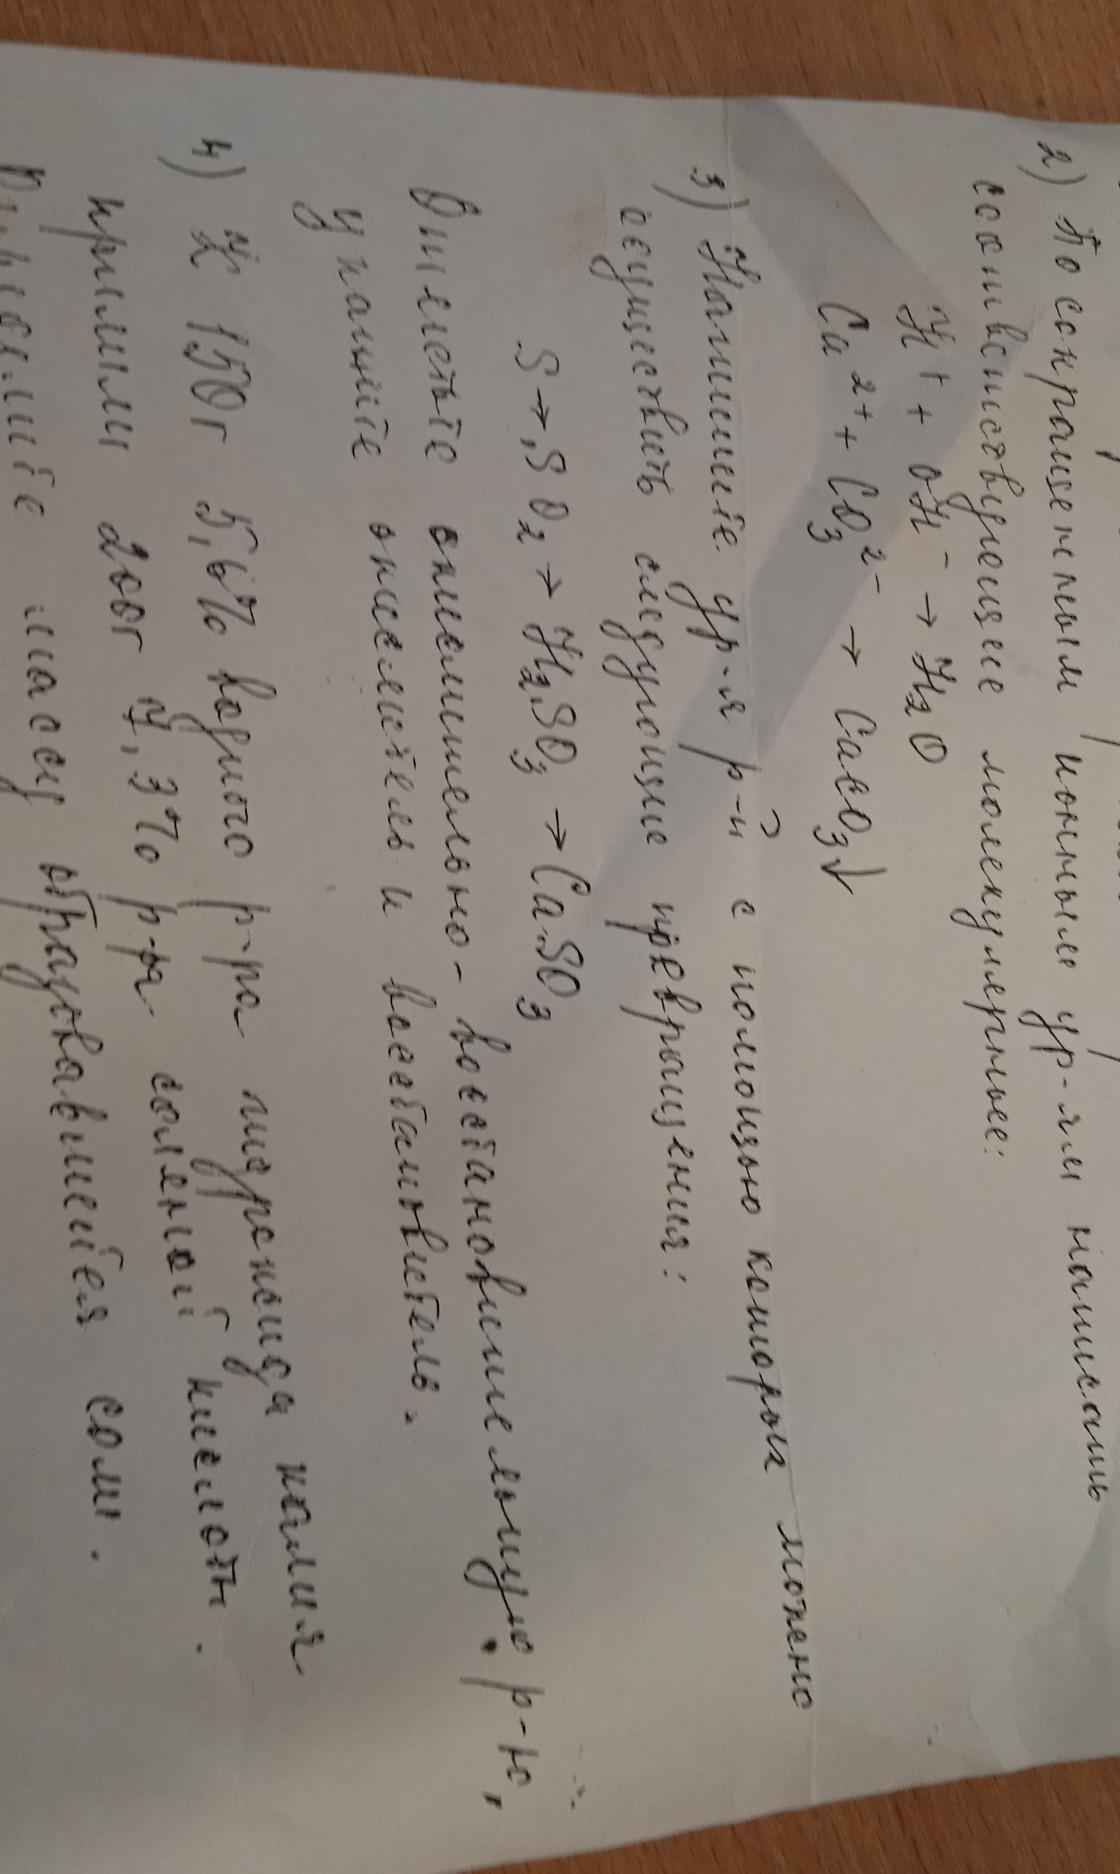 2) По сокращенным ионным ур-ям написать
соответствующее молекулярные:
H⁺ + OH⁻ → H₂O
Ca²⁺ + CO₃²⁻ → CaCO₃↓
3) Напишите ур-я р-й с помощью которых можено
осуществить следующие превращения:
S → SO₂ → H₂SO₃ → CaSO₃
Опишете окислительно-восстановительную р-ю,
укажите окислитель и восстановитель.
4) К 150г 5,6% водного р-ра гидроксида калия
прилили 200г 7,3% р-ра соляной кислоты.
массу образовавшейся соли.